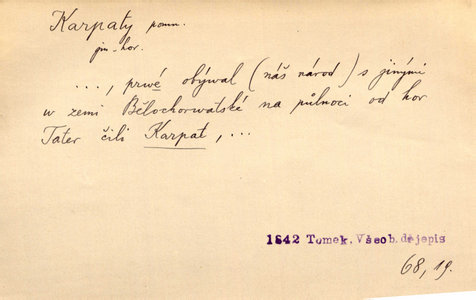 Karpaty pomn.
jm. hor.
..., prwé obýwal (náš národ) s jinými
w zemi Bělochorwatské na půlnoci od hor
Tater čili Karpat, ...
1842 Tomek. Všeob. dějepis
68, 19.